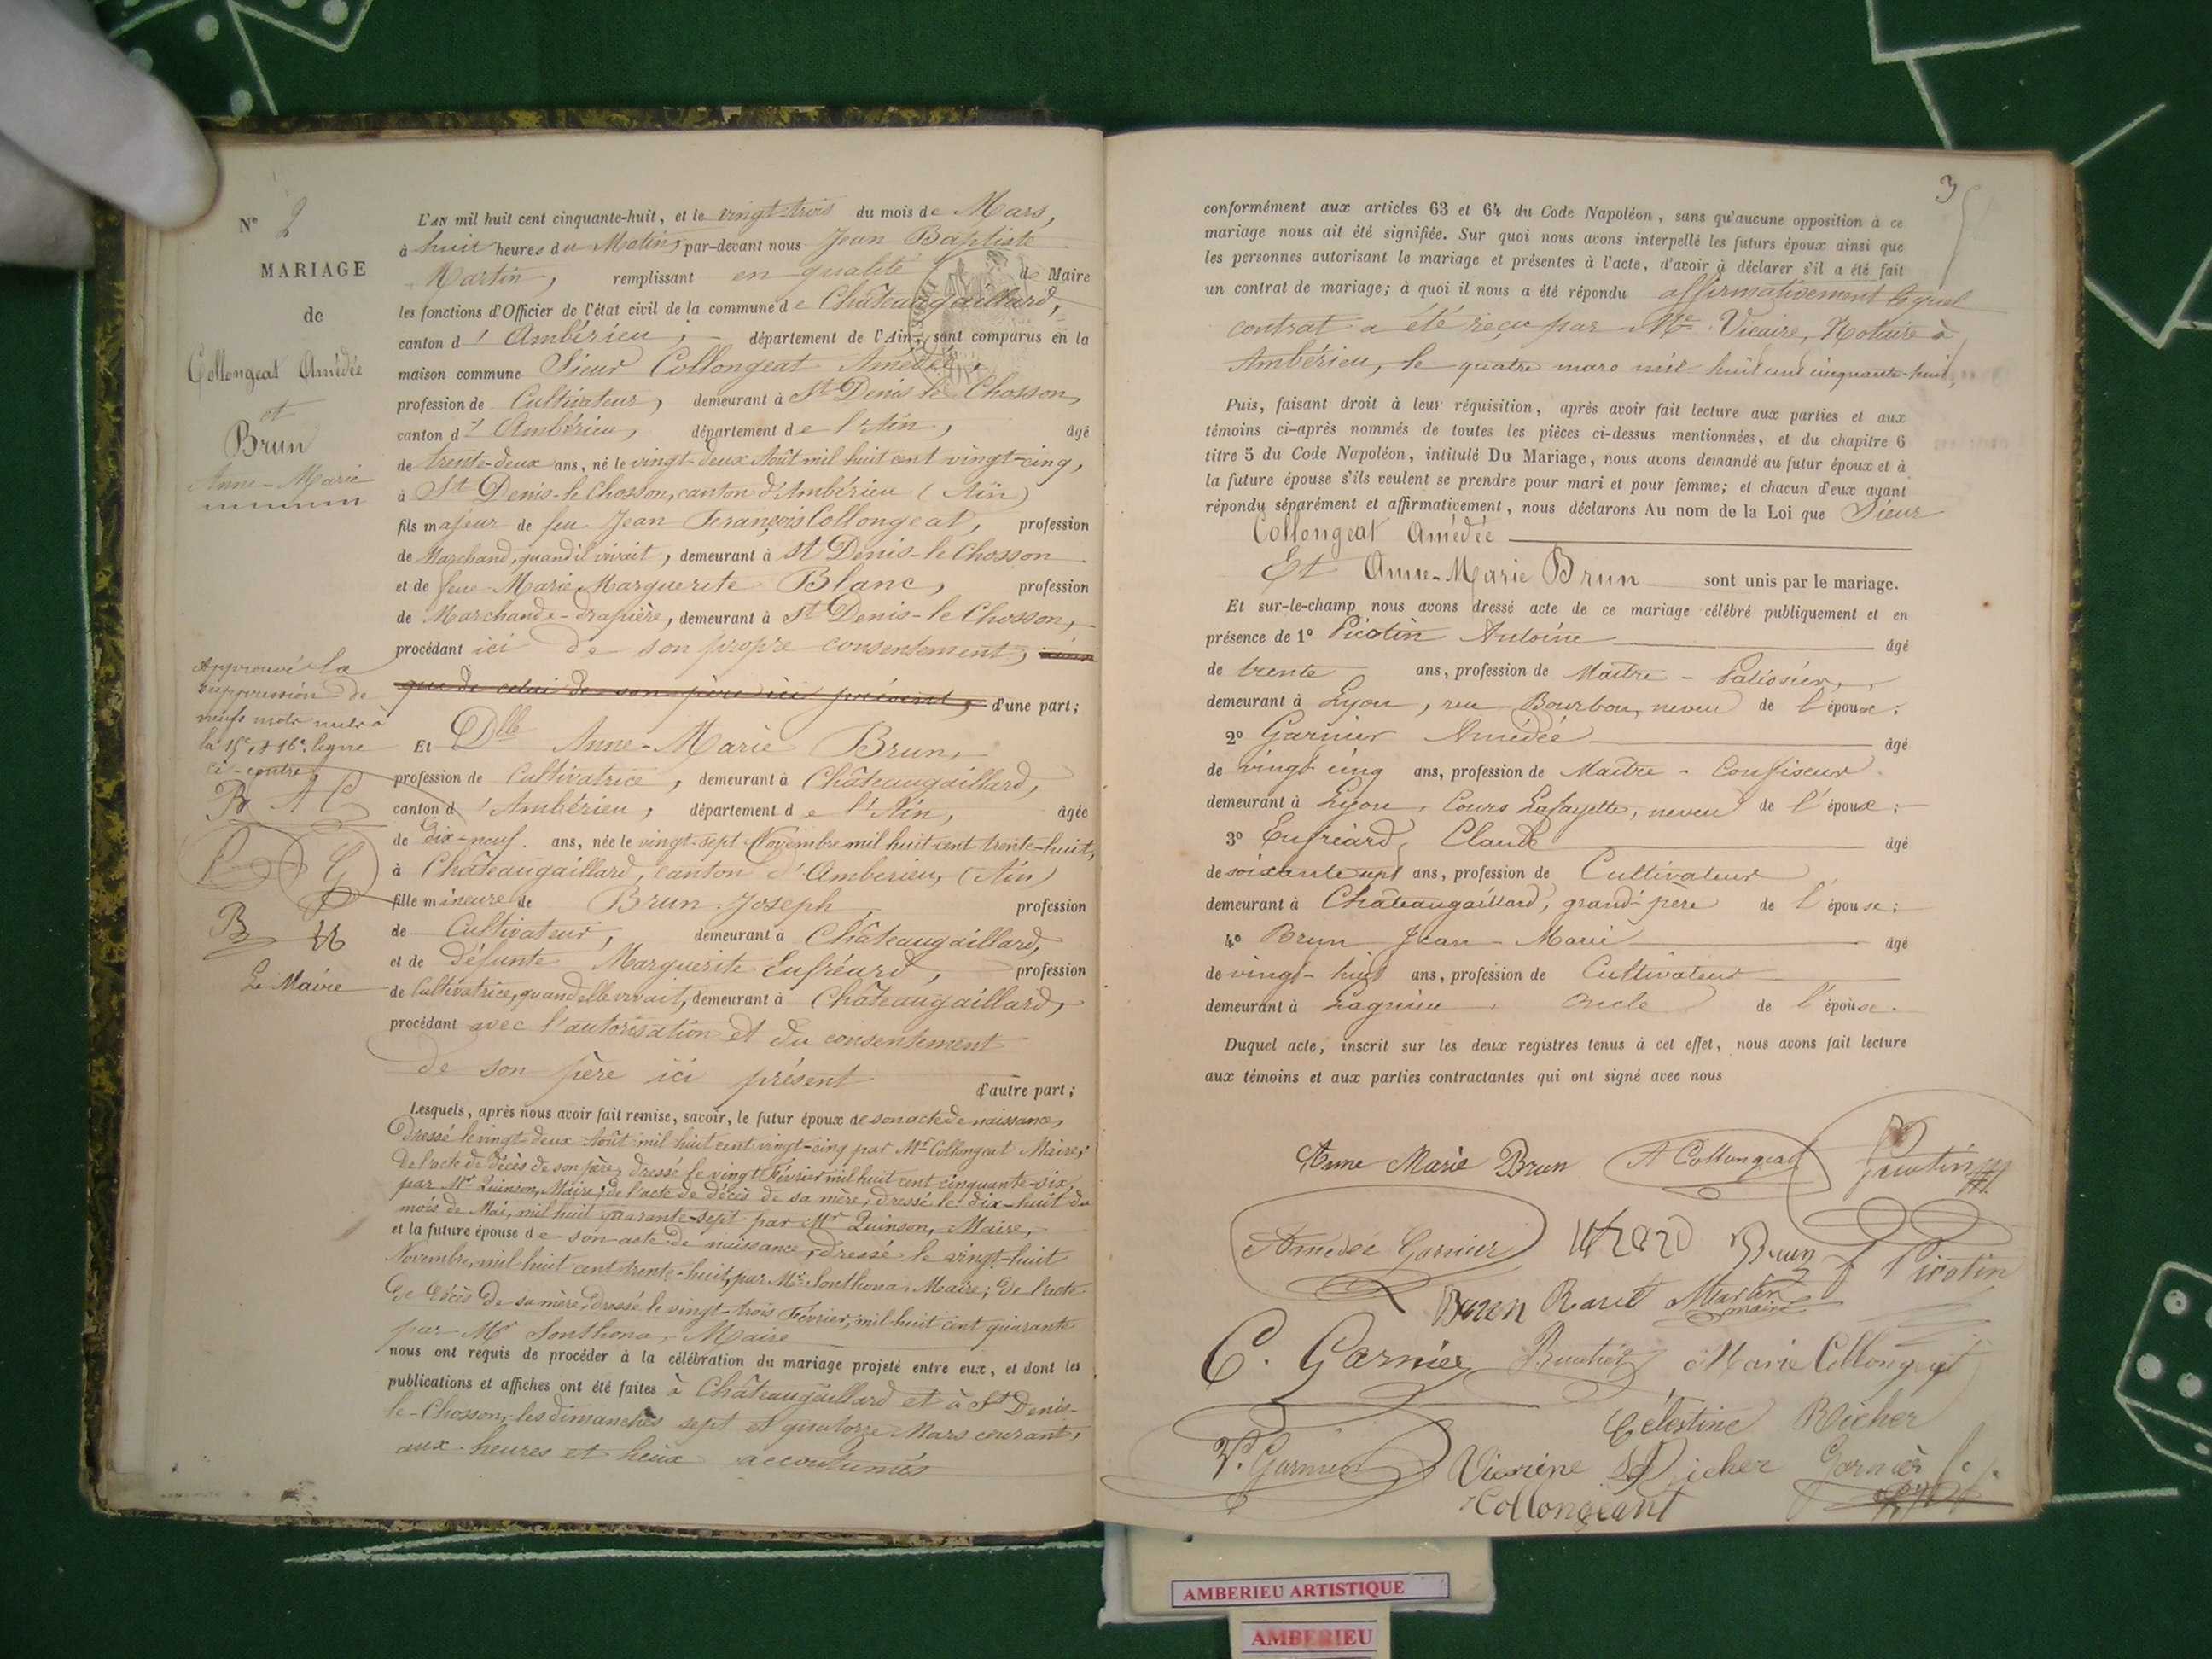 N° 2
MARIAGE
de
Collongeat Amédée
et
Brun
Anne-Marie
Approuvé la
suppression de
neufs mots nuls à
la 15e et 16e ligne
ci-contre
B AC
G
B
Le Maire
L'AN mil huit cent cinquante-huit, et le vingt-trois du mois de Mars,
à huit heures du Matin, par-devant nous Jean Baptiste
Martin, remplissant en qualité de Maire
les fonctions d'Officier de l'état civil de la commune de Châteaugaillard,
canton d'Ambérieu, département de l'Ain, sont comparus en la
maison commune Sieur Collongeat Amédée,
profession de Cultivateur, demeurant à St Denis le Chosson,
canton d'Ambérieu, département de l'Ain, âgé
de trente-deux ans, né le vingt-deux Août mil huit cent vingt-cinq,
à St Denis-le Chosson, canton d'Ambérieu (Ain)
fils majeur de feu Jean François Collongeat, profession
de Marchand, quand il vivait, demeurant à St Denis-le Chosson
et de feue Marie Marguerite Blanc, profession
de Marchande-drapière, demeurant à St Denis-le Chosson,
procédant ici de son propre consentement,
que de celui de son père ici présent, d'une part;
Et Dlle Anne-Marie Brun,
profession de Cultivatrice, demeurant à Châteaugaillard,
canton d'Ambérieu, département de l'Ain, âgée
de dix-neuf ans, née le vingt-sept Novembre mil huit cent trente-huit,
à Châteaugaillard, canton d'Ambérieu, (Ain)
fille mineure de Brun Joseph profession
de Cultivateur, demeurant à Châteaugaillard,
et de défunte Marguerite Eufréard, profession
de Cultivatrice, quand elle vivait, demeurant à Châteaugaillard,
procédant avec l'autorisation et du consentement
de son père ici présent d'autre part;
Lesquels, après nous avoir fait remise, savoir, le futur époux de son acte de naissance,
dressé le vingt deux Août mil huit cent vingt-cinq par Mr Collongeat Maire;
de l'acte de décès de son père, dressé le vingt Février mil huit cent cinquante-six,
par Mr Quinson, Maire; de l'acte de décès de sa mère, dressé le dix-huit du
mois de Mai, mil huit quarante-sept par Mr Quinson, Maire,
et la future épouse de son acte de naissance, dressé le vingt-huit
Novembre, mil huit cent trente-huit, par Mr Sonthona, Maire; de l'acte
de décès de sa mère, dressé le vingt-trois Février, mil huit cent quarante
par Mr Sonthona, Maire
nous ont requis de procéder à la célébration du mariage projeté entre eux, et dont les
publications et affiches ont été faites à Châteaugaillard et à St Denis-
le-Chosson, les dimanches sept et quatorze Mars courant,
aux heures et lieux accoutumés
3
conformément aux articles 63 et 64 du Code Napoléon, sans qu'aucune opposition à ce
mariage nous ait été signifiée. Sur quoi nous avons interpellé les futurs époux ainsi que
les personnes autorisant le mariage et présentes à l'acte, d'avoir à déclarer s'il a été fait
un contrat de mariage; à quoi il nous a été répondu affirmativement lequel
contrat a été reçu par Me Vicaire, Notaire à
Ambérieu, le quatre mars mil huit cent cinquante-huit,
Puis, faisant droit à leur réquisition, après avoir fait lecture aux parties et aux
témoins ci-après nommés de toutes les pièces ci-dessus mentionnées, et du chapitre 6
titre 5 du Code Napoléon, intitulé Du Mariage, nous avons demandé au futur époux et à
la future épouse s'ils veulent se prendre pour mari et pour femme; et chacun d'eux ayant
répondu séparément et affirmativement, nous déclarons Au nom de la Loi que Sieur
Collongeat Amédée
Et Anne-Marie Brun sont unis par le mariage.
Et sur-le-champ nous avons dressé acte de ce mariage célébré publiquement et en
présence de 1° Picotin Antoine âgé
de trente ans, profession de Maître-Patissier,
demeurant à Lyon, rue Bourbon, neveu de l'époux;
2° Garnier Amédée âgé
de vingt cinq ans, profession de Maitre-Confiseur
demeurant à Lyon, Cours Lafayette, neveu de l'époux;
3° Eufréard, Claude âgé
de soixante sept ans, profession de Cultivateur
demeurant à Châteaugaillard, grand-père de l'épouse;
4° Brun Jean-Marie âgé
de vingt-huit ans, profession de Cultivateur
demeurant à Lagnieu, oncle de l'épouse.
Duquel acte, inscrit sur les deux registres tenus à cet effet, nous avons fait lecture
aux témoins et aux parties contractantes qui ont signé avec nous
Anne Marie Brun A Collongeat Picotin
Amédée Garnier Brun Picotin
Martin
maire
C. Garnier Marie Collongeat
Célestine Richer
V. Garnier Richer Garnier
Collongeant
AMBERIEU ARTISTIQUE
AMBERIEU